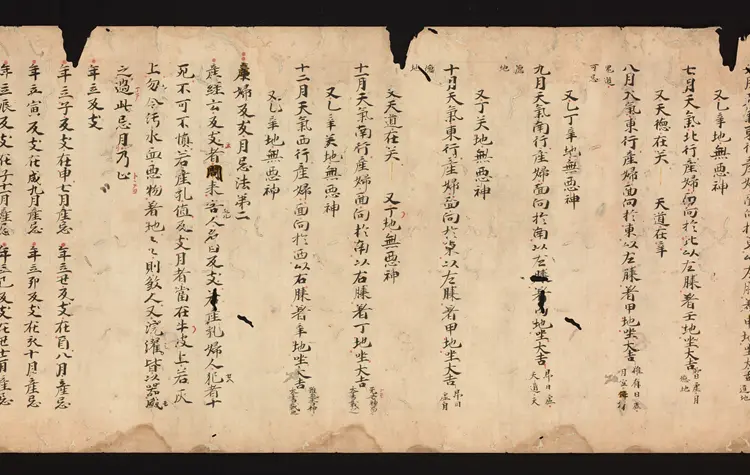 又乙辛地無惡神
七月天氣北行產婦面向於北以左膝著壬地坐大吉
又天德在天 天道在辛
八月天氣東行產婦面向於東以左膝著甲地坐大吉
又乙丁辛地無惡神
九月天氣南行產婦面向於南以左膝著丙地坐大吉
又丁癸地無惡神
十月天氣東行產婦面向於東以左膝著甲地坐大吉
又天道在天 又丁地無惡神
十一月天氣南行產婦面向於南以右膝著丁地坐大吉
又乙辛癸地無惡神
十二月天氣西行產婦面向於西以右膝著辛地坐大吉
又乙辛地無惡神
產婦反支月忌法第二
產經云反支者周來害人名曰反支若產乳婦人犯者十
死不可不慎若產乳值反支月者當在牛皮上若灰
上勿令汚水血惡物著地々々則殺人又浣濯皆以器盛
之過此忌月乃止
年立反支
年立子反支在申七月產忌 年立丑反支在酉八月產忌
年立寅反支在戌九月產忌 年立卯反支在亥十月產忌
年立辰反支在子十一月產忌 年立巳反支在丑十二月產忌